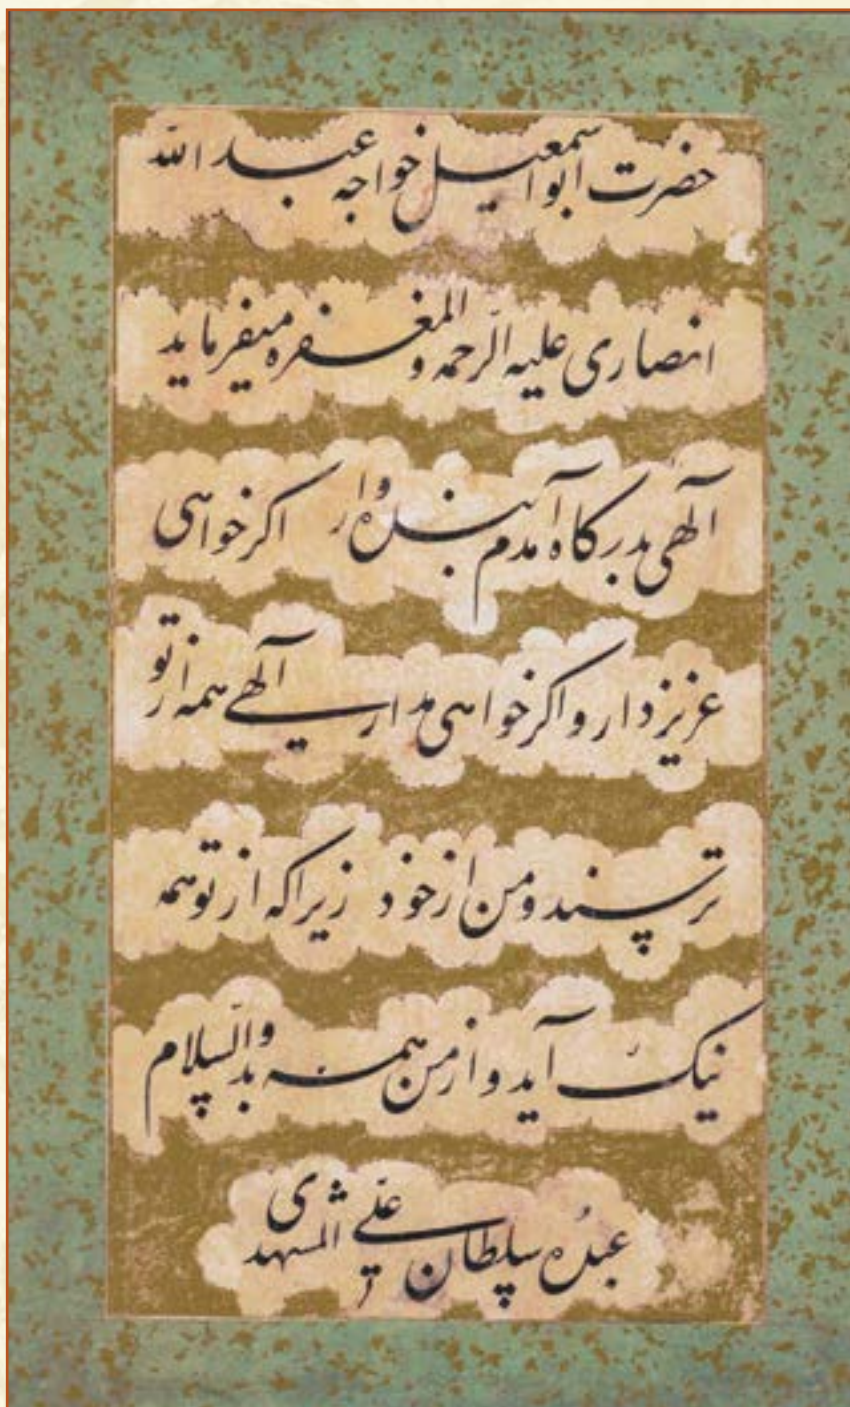 حضرت ابواسمعیل خواجه عبد الله
انصاری علیه الرّحمه والمغفره میفرماید
الٓهی بدرکاه آمدم بنده وار اکر خواهی
عزیز دار و اکر خواهی مدار الٓهی همه از تو
ترسند و من از خود زیرا که از تو همه
نیک آید و از من همه بد والسّلام
عبدُه سلطان علی المشهدی